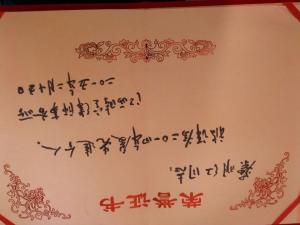 荣誉证书
同志:
被评为二〇一四年度先进个人。
江西 律师事务所
二〇一五年二月十日